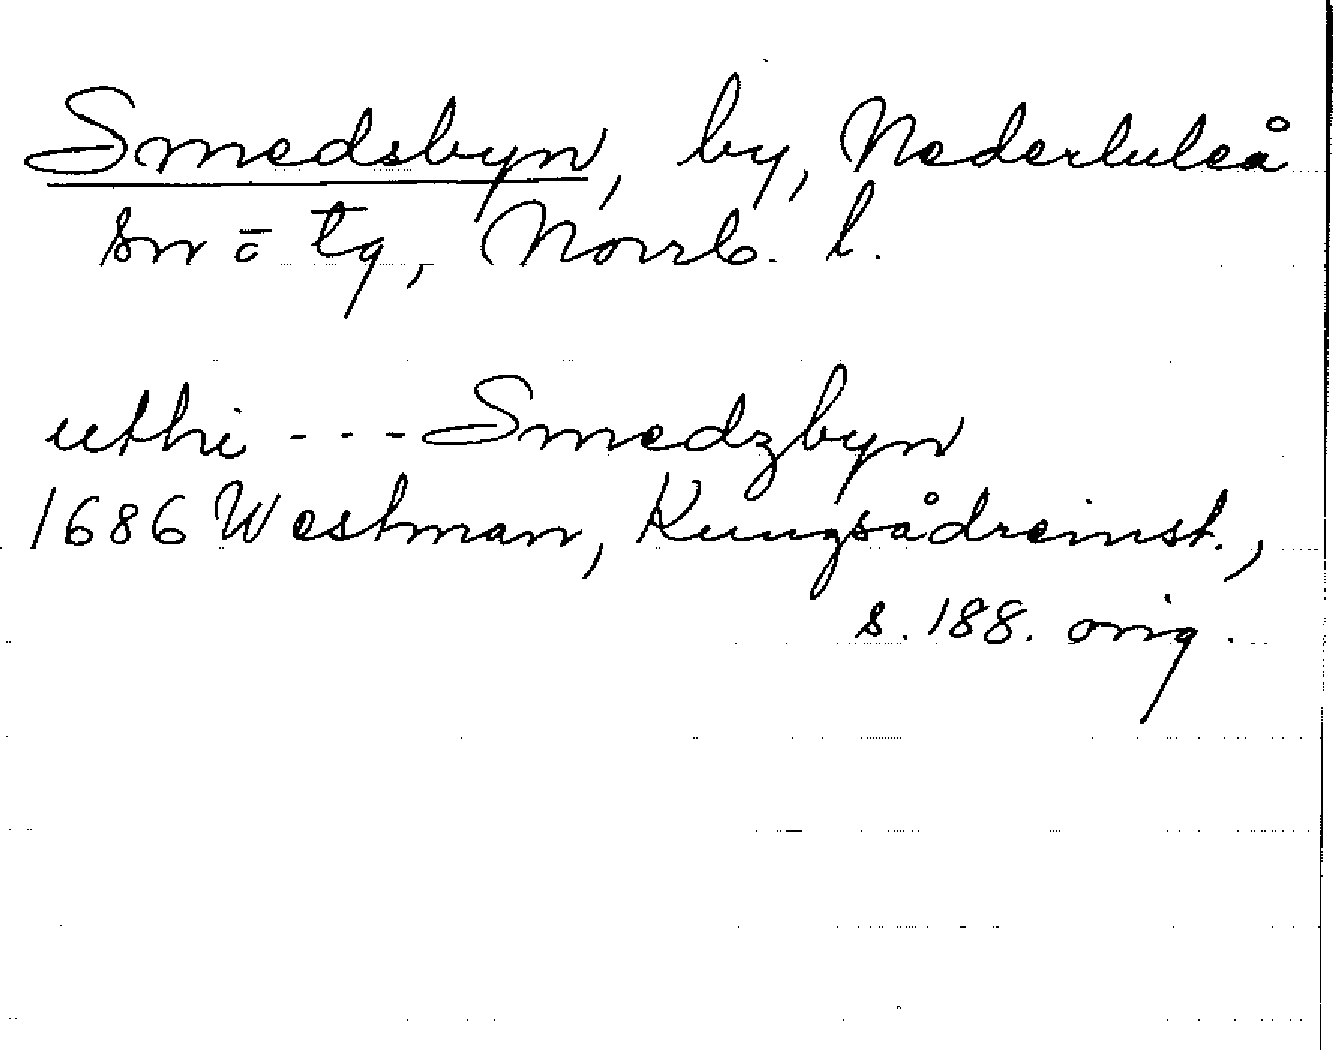 Smedsbyn, by, Nederluleå
sn o tg, Norrb. l.
uthi - - - Smedzbyn
1686 Westman, Kungsådreinst.,
s. 188. orig.